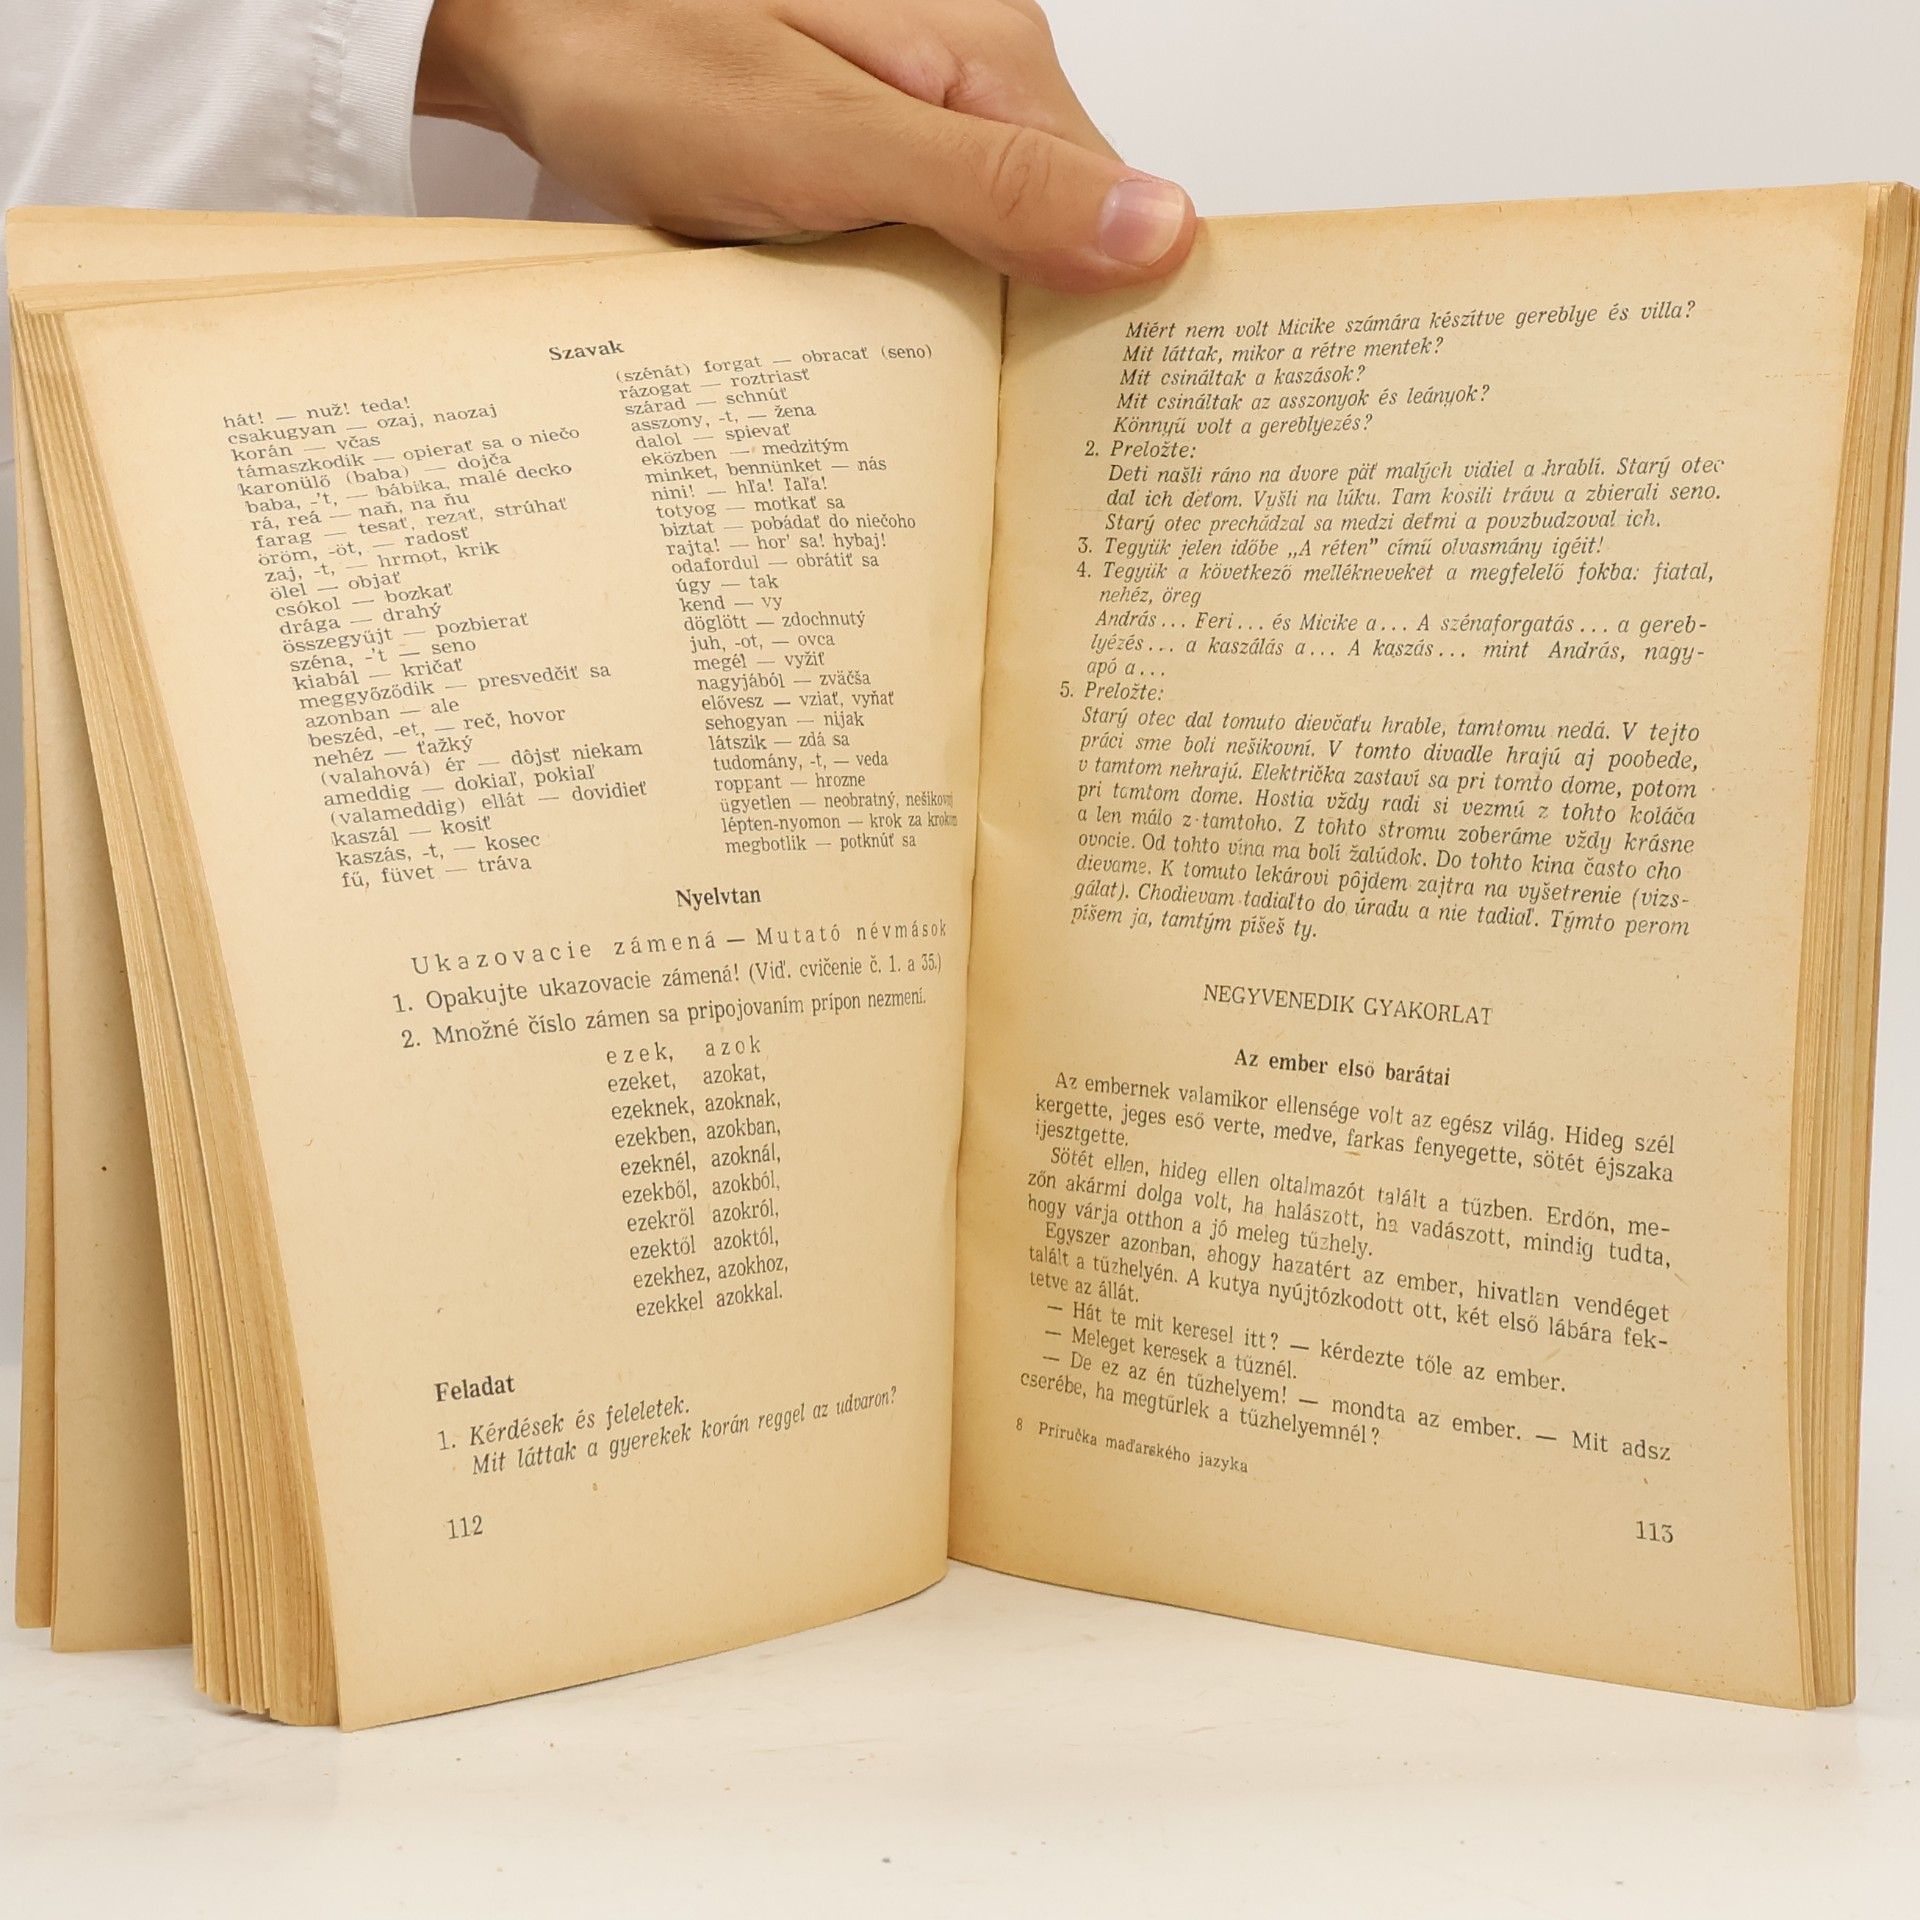 Szavak
hát! — nuž! teda!
csakugyan — ozaj, naozaj
korán — včas
támaszkodik — opierať sa o niečo
karonülő (baba) — dojča
baba, -'t, — bábika, malé decko
rá, reá — naň, na ňu
farag — tesať, rezať, strúhať
öröm, -öt, — radosť
zaj, -t, — hrmot, krik
ölel — objať
csókol — bozkať
drága — drahý
összegyűjt — pozbierať
széna, -'t — seno
kiabál — kričať
meggyőződik — presvedčiť sa
azonban — ale
beszéd, -et, — reč, hovor
nehéz — ťažký
(valahová) ér — dôjsť niekam
ameddig — dokiaľ, pokiaľ
(valameddig) ellát — dovidieť
kaszál — kosiť
kaszás, -t, — kosec
fű, füvet — tráva
(szénát) forgat — obracať (seno)
rázogat — roztriasť
szárad — schnúť
asszony, -t, — žena
dalol — spievať
eközben — medzitým
minket, bennünket — nás
nini! — hľa! ľaľa!
totyog — motkať sa
biztat — pobádať do niečoho
rajta! — hor' sa! hybaj!
odafordul — obrátiť sa
úgy — tak
kend — vy
döglött — zdochnutý
juh, -ot, — ovca
megél — vyžiť
nagyjából — zväčša
elővesz — vziať, vyňať
sehogyan — nijak
látszik — zdá sa
tudomány, -t, — veda
roppant — hrozne
ügyetlen — neobratný, nešikovný
lépten-nyomon — krok za krokom
megbotlik — potknúť sa
Nyelvtan
Ukazovacie zámená — Mutató névmások
1. Opakujte ukazovacie zámená! (Viď. cvičenie č. 1. a 35.)
2. Množné číslo zámen sa pripojovaním prípon nezmení.
ezek, azok
ezeket, azokat,
ezeknek, azoknak,
ezekben, azokban,
ezeknél, azoknál,
ezekből, azokból,
ezekről azokról,
ezektől azoktól,
ezekhez, azokhoz,
ezekkel azokkal.
Feladat
1. Kérdések és feleletek.
Mit láttak a gyerekek korán reggel az udvaron?
112
Miért nem volt Micike számára készítve gereblye és villa?
Mit láttak, mikor a rétre mentek?
Mit csináltak a kaszások?
Mit csináltak az asszonyok és leányok?
Könnyű volt a gereblyezés?
2. Preložte:
Deti našli ráno na dvore päť malých vidiel a hrablí. Starý otec
dal ich deťom. Vyšli na lúku. Tam kosili trávu a zbierali seno.
Starý otec prechádzal sa medzi deťmi a povzbudzoval ich.
3. Tegyük jelen időbe „A réten” című olvasmány igéit!
4. Tegyük a következő mellékneveket a megfelelő fokba: fiatal,
nehéz, öreg
András... Feri... és Micike a... A szénaforgatás... a gereb-
lyézés... a kaszálás a... A kaszás... mint András, nagy-
apó a...
5. Preložte:
Starý otec dal tomuto dievčaťu hrable, tamtomu nedá. V tejto
práci sme boli nešikovní. V tomto divadle hrajú aj poobede,
v tamtom nehrajú. Električka zastaví sa pri tomto dome, potom
pri tamtom dome. Hostia vždy radi si vezmú z tohto koláča
a len málo z tamtoho. Z tohto stromu zoberáme vždy krásne
ovocie. Od tohto vína ma bolí žalúdok. Do tohto kina často cho
dievame. K tomuto lekárovi pôjdem zajtra na vyšetrenie (vizs-
gálat). Chodievam tadiaľto do úradu a nie tadiaľ. Týmto perom
píšem ja, tamtým píšeš ty.
NEGYVENEDIK GYAKORLAT
Az ember első barátai
Az embernek valamikor ellensége volt az egész világ. Hideg szél
kergette, jeges eső verte, medve, farkas fenyegette, sötét éjszaka
ijesztgette.
Sötét ellen, hideg ellen oltalmazót talált a tűzben. Erdőn, me-
zőn akármi dolga volt, ha halászott, ha vadászott, mindig tudta,
hogy várja otthon a jó meleg tűzhely.
Egyszer azonban, ahogy hazatért az ember, hivatlan vendéget
talált a tűzhelyén. A kutya nyújtózkodott ott, két első lábára fek-
tetve az állát.
— Hát te mit keresel itt? — kérdezte tőle az ember.
— Meleget keresek a tűznél.
— De ez az én tűzhelyem! — mondta az ember. — Mit adsz
cserébe, ha megtűrlek a tűzhelyemnél?
8 Príručka maďarského jazyka
113